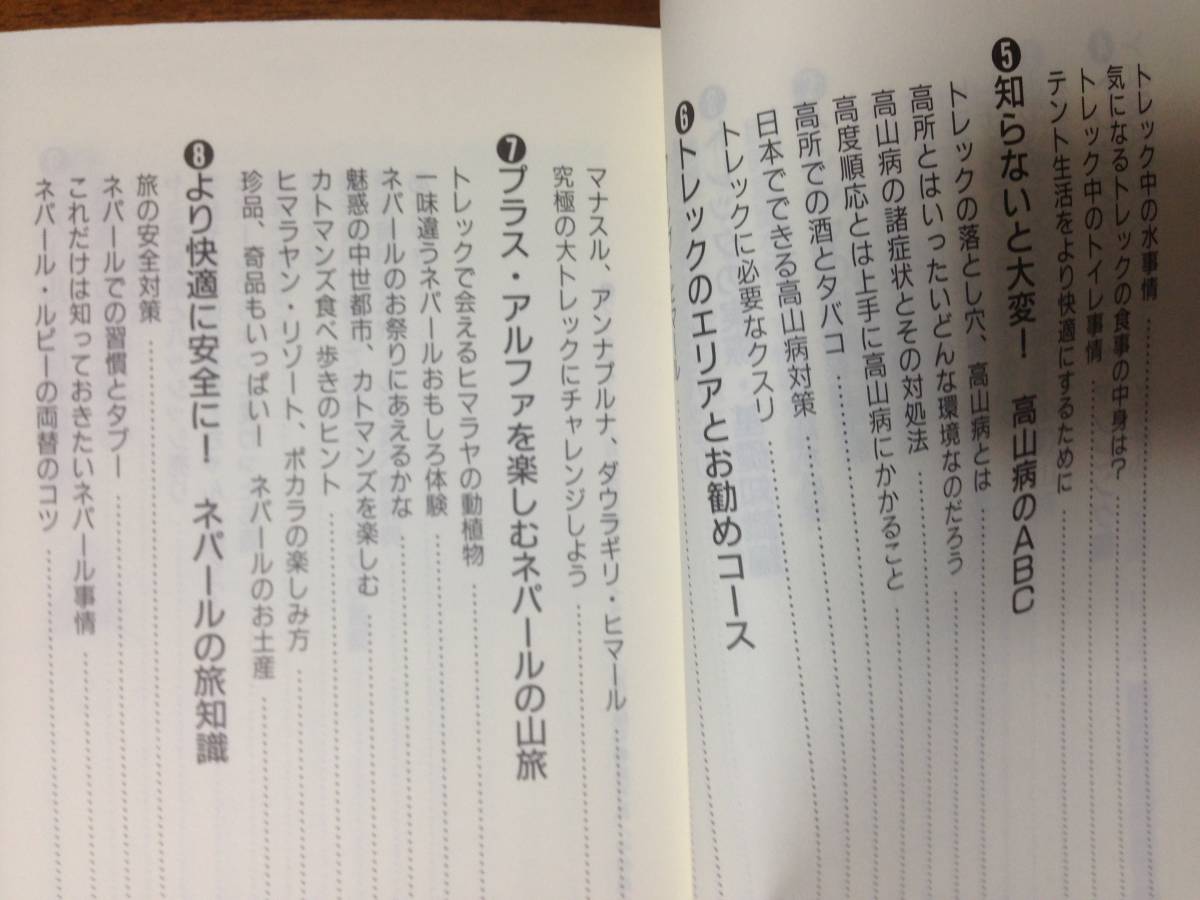 トレック中の水事情
気になるトレックの食事の中身は？
トレック中のトイレ事情
テント生活をより快適にするために
❺知らないと大変！　高山病のABC
トレックの落とし穴、高山病とは
高所とはいったいどんな環境なのだろう
高山病の諸症状とその対処法
高度順応とは上手に高山病にかかること
高所での酒とタバコ
日本でできる高山病対策
トレックに必要なクスリ
❻トレックのエリアとお勧めコース
マナスル、アンナプルナ、ダウラギリ・ヒマール
究極の大トレックにチャレンジしよう
❼プラス・アルファを楽しむネパールの山旅
トレックで会えるヒマラヤの動植物
一味違うネパールおもしろ体験
ネパールのお祭りにあえるかな
魅惑の中世都市、カトマンズを楽しむ
カトマンズ食べ歩きのヒント
ヒマラヤン・リゾート、ポカラの楽しみ方
珍品、奇品もいっぱいー　ネパールのお土産
❽より快適に安全に！　ネパールの旅知識
旅の安全対策
ネパールでの習慣とタブー
これだけは知っておきたいネパール事情
ネパール・ルピーの両替のコツ